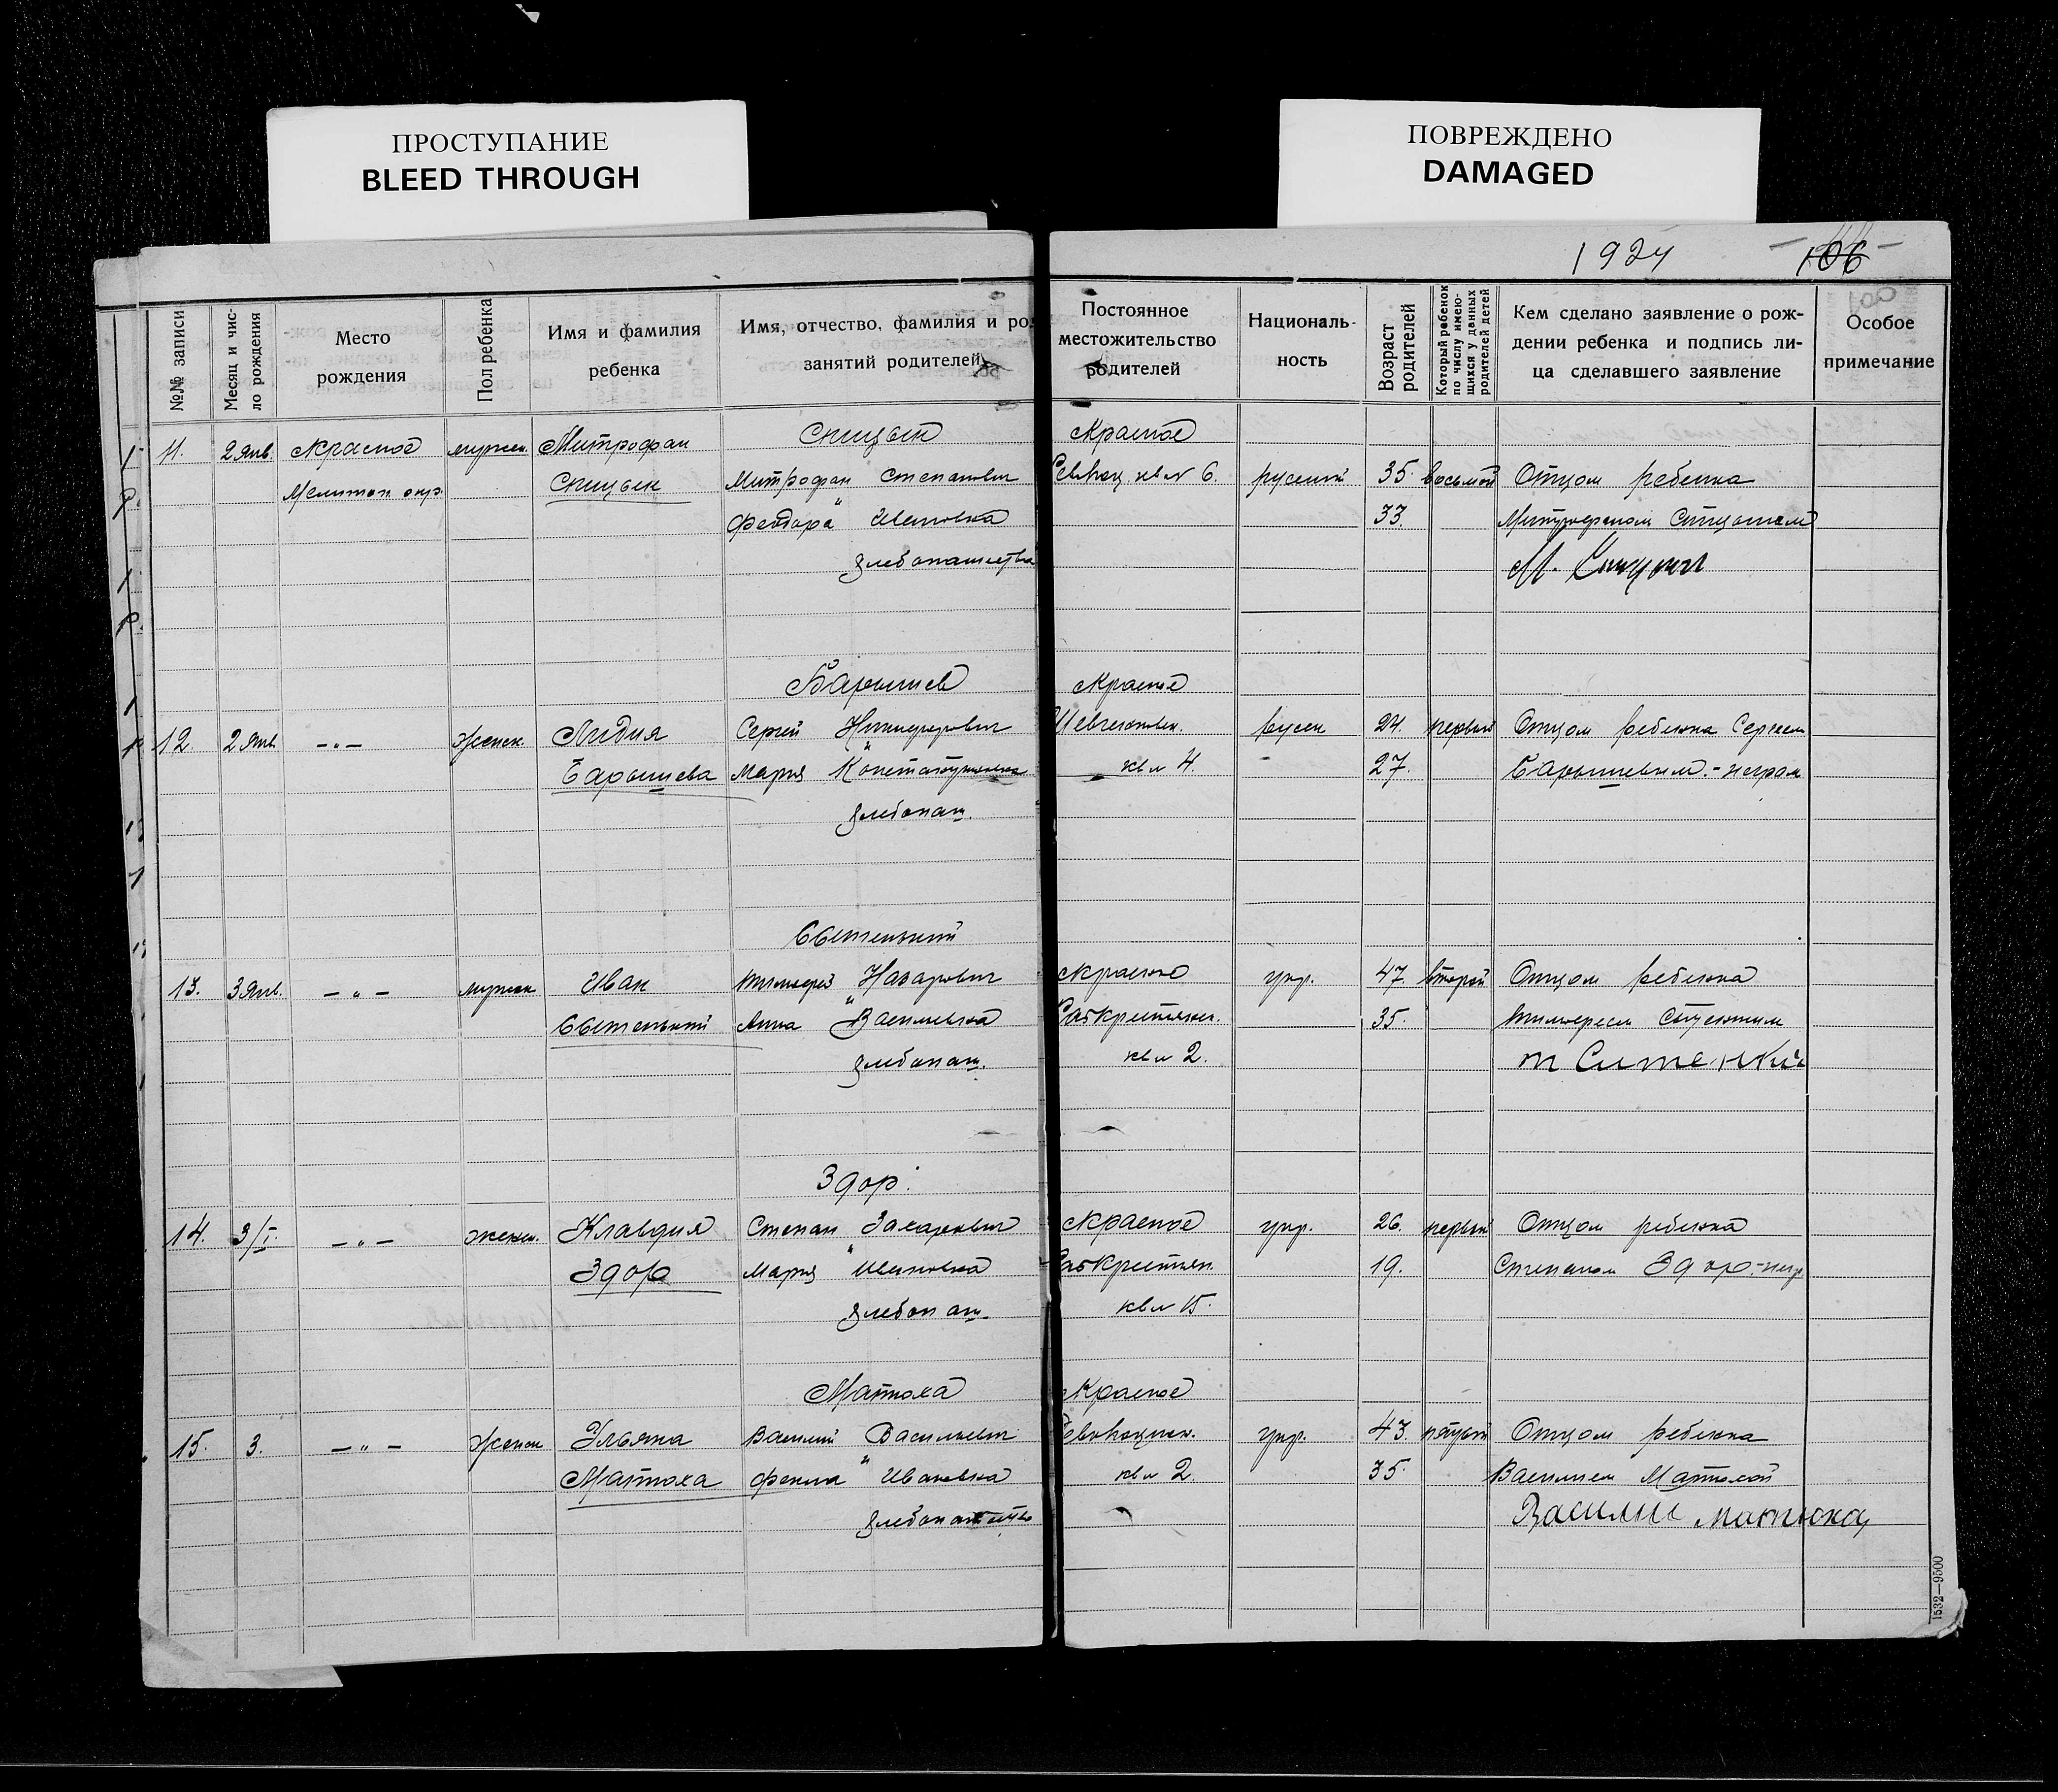 ПРОСТУПАНИЕ
BLEED THROUGH
ПОВРЕЖДЕНО
DAMAGED
1924
106
№№ записи
Месяц и чис-
ло рождения
Место
рождения
Пол ребенка
Имя и фамилия
ребенка
Имя, отчество, фамилия и ро
занятий родителей
Постоянное
местожительство
родителей
Националь-
ность
Возраст
родителей
Который ребенок
по числу имею-
щихся у данных
родителей детей
Кем сделано заявление о рож-
дении ребенка и подпись ли-
ца сделавшего заявление
Особое
примечание
Спицын
с Красное
11. 2 янв. с Красное мужск. Митрофан
Мелитоп окр. Спицын Митрофан Степанович кв № 6 русский 35. восьмой Отцом ребенка
Федора Ивановна 33. Митрофаном Спицыным
хлебопашество М. Спицын
Барышев с Красное
12 2 янв. —"— женск. Лидия Сергей Никифорович Шевченковск. русск 24. первый Отцом ребенка Сергеем
Барышева Мария Константиновна кв № 4. 27. Барышевым.- неграм.
хлебопаш.
13. 3 янв. — " — мужск Иван Тимофей Назарович с Красное укр. 47. второй Отцом ребенка
Анна Васильевна Рабкрестьянск. 35. Тимофеем
хлебопаш. кв № 2. т Ситенкий
Здор.
14. 3/I. — " — женск. Клавдия Степан Захарович с Красное укр. 26. первый Отцом ребенка
Здор Мария Ивановна Рабкрестьян. 19. Степаном Здор.- негр.
хлебопаш. кв № 15.
Матюха с Красное
15. 3. — " — женск Ульяна Василий Васильевич Революцион. укр. 43. пятый Отцом ребенка
Матюха Фекла Ивановна кв № 2. 35. Василием Матюхой
хлебопашество Василий Матюха
1532—9500